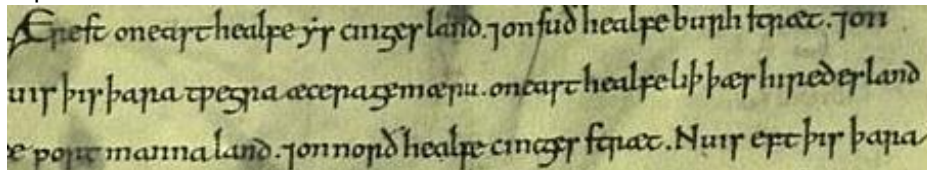 Ærest on east healfe ẏs cinges land. ⁊ on suð healfe burh stræt. ⁊ on
uis þis þara tƿegra æcera gemæru. on east healfe liþ þær hiredes land
e port manna land. ⁊ on norð healfe cinges stræt. Nu is eft þis þara